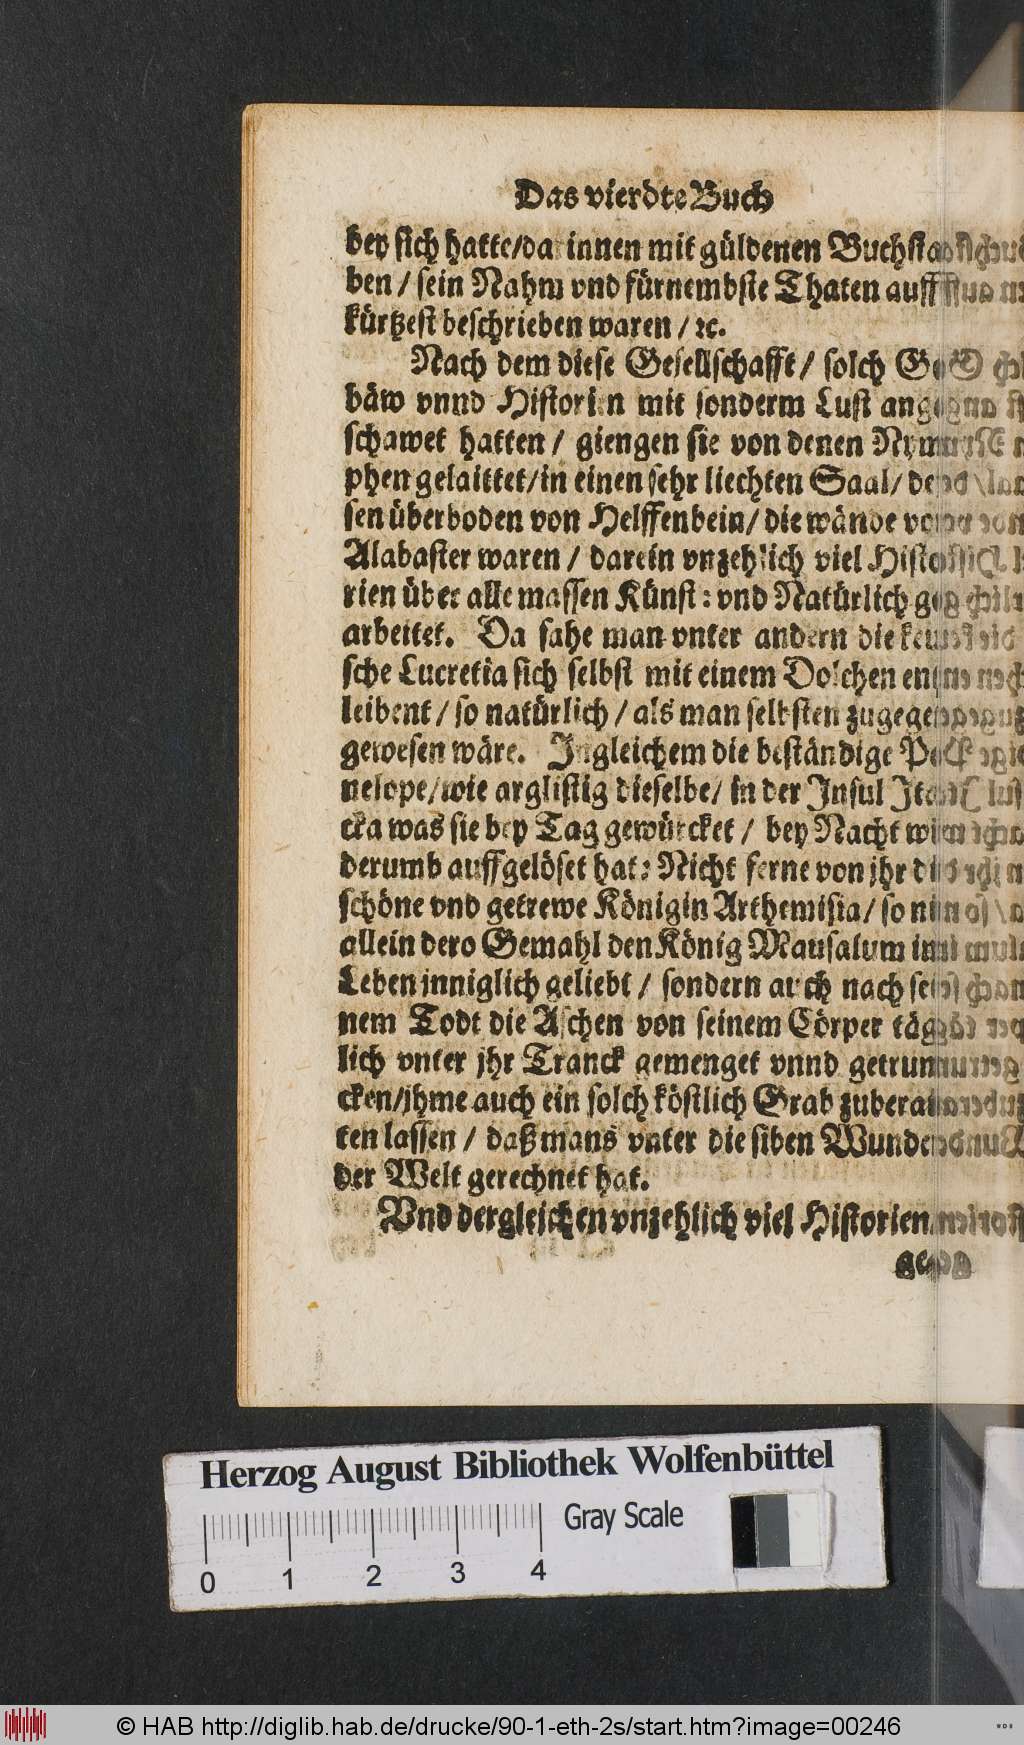 Das vierdte Buch
bey sich hatte/darinnen mit güldenen Buchstaben
ben / sein Nahm vnd fürnembste Thaten auffs
kürtzest beschrieben waren / ꝛc.
Nach dem diese Gesellschafft / solch Ge
bäw vnnd Historien mit sonderm Lust ange
schawet hatten / giengen sie von denen Nym
phen gelaittet/in einen sehr liechten Saal/ des
sen überboden von Helffenbein/ die wände von
Alabaster waren / darein vnzehlich viel Histo
rien über alle massen Künst: vnd Natürlich ge
arbeitet. Da sahe man vnter andern die keu
sche Lucretia sich selbst mit einem Dolchen ent
leibent / so natürlich / als man selbsten zugegen
gewesen wäre. Ingleichem die beständige Pe
nelope/wie arglistig dieselbe/ in der Insul Ita
cka was sie bey Tag gewürcket / bey Nacht wi
derumb auffgelöset hat: Nicht ferne von jhr die
schöne vnd getrewe Königin Arthemisia/ so nit
allein dero Gemahl den König Mausalum im
Leben jnniglich geliebt / sondern auch nach sei
nem Todt die Aschen von seinem Cörper täg
lich vnter jhr Tranck gemenget vnnd getrun
cken/jhme auch ein solch köstlich Grab zuberai
ten lassen / daß mans vnter die siben Wunder
der Welt gerechnet hat.
Vnd dergleichen vnzehlich viel Historien
Herzog August Bibliothek Wolfenbüttel
Gray Scale
0 1 2 3 4
© HAB http://diglib.hab.de/drucke/90-1-eth-2s/start.htm?image=00246